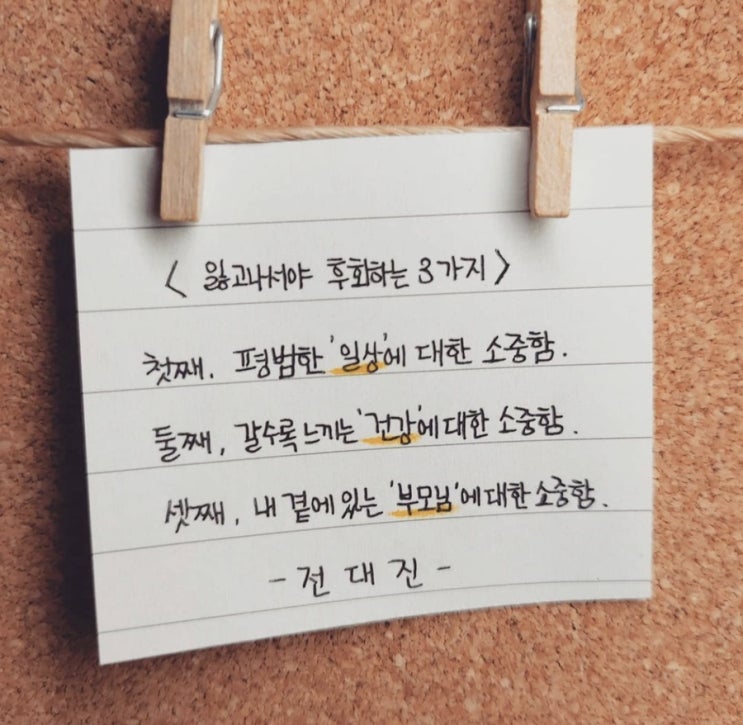 < 잃고나서야 후회하는 3가지 >
첫째. 평범한 '일상'에 대한 소중함.
둘째, 갈수록 느끼는 '건강'에 대한 소중함.
셋째, 내 곁에 있는 '부모님'에 대한 소중함.
- 전 대 진 -